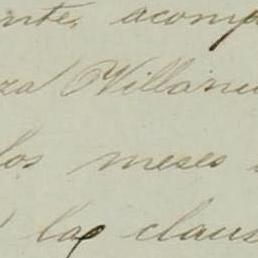 nte, acomp
za Villanu
los meses
las claus